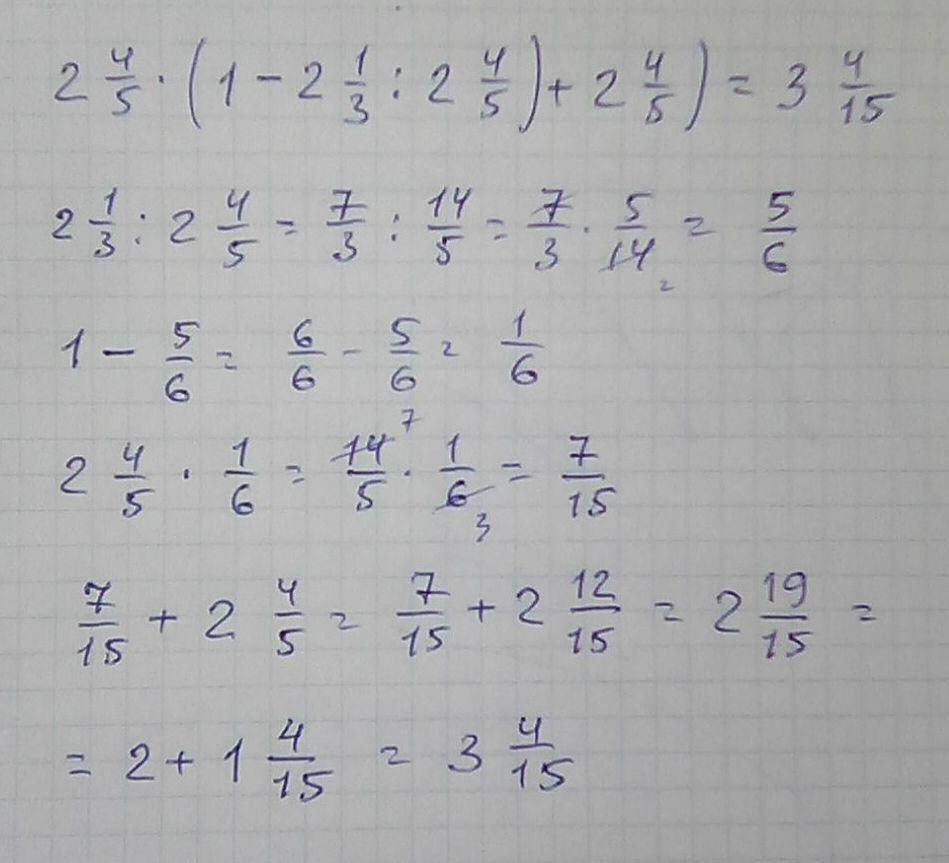 2 4/5 · (1 - 2 1/3 : 2 4/5) + 2 4/5) = 3 4/15
2 1/3 : 2 4/5 = 7/3 : 14/5 = 7/3 · 5/14 2 = 5/6
1 - 5/6 = 6/6 - 5/6 = 1/6
2 4/5 · 1/6 = 14/5 7 · 1/6 3 = 7/15
7/15 + 2 4/5 = 7/15 + 2 12/15 = 2 19/15 =
= 2 + 1 4/15 = 3 4/15